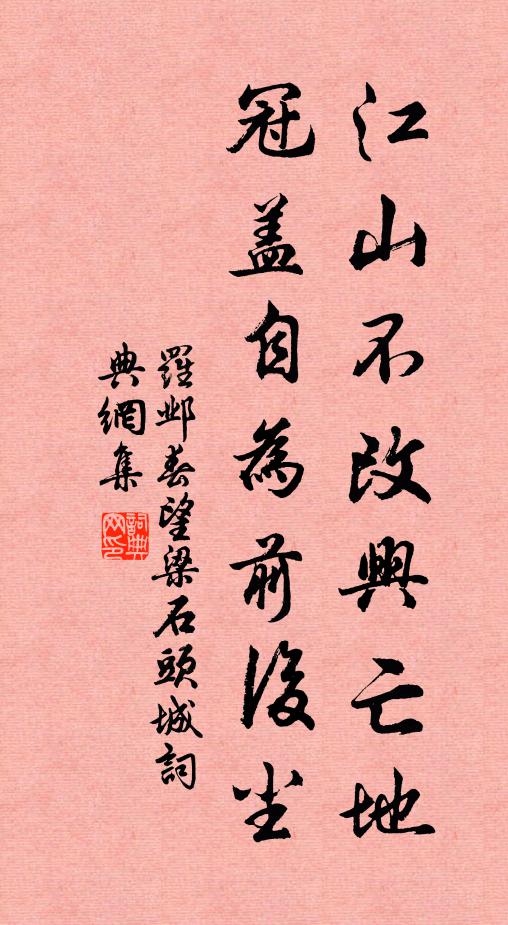 江山不改興亡地
冠盖自為前後尘
羅邺春望梁石頭城詞
典網集
詞典
网印